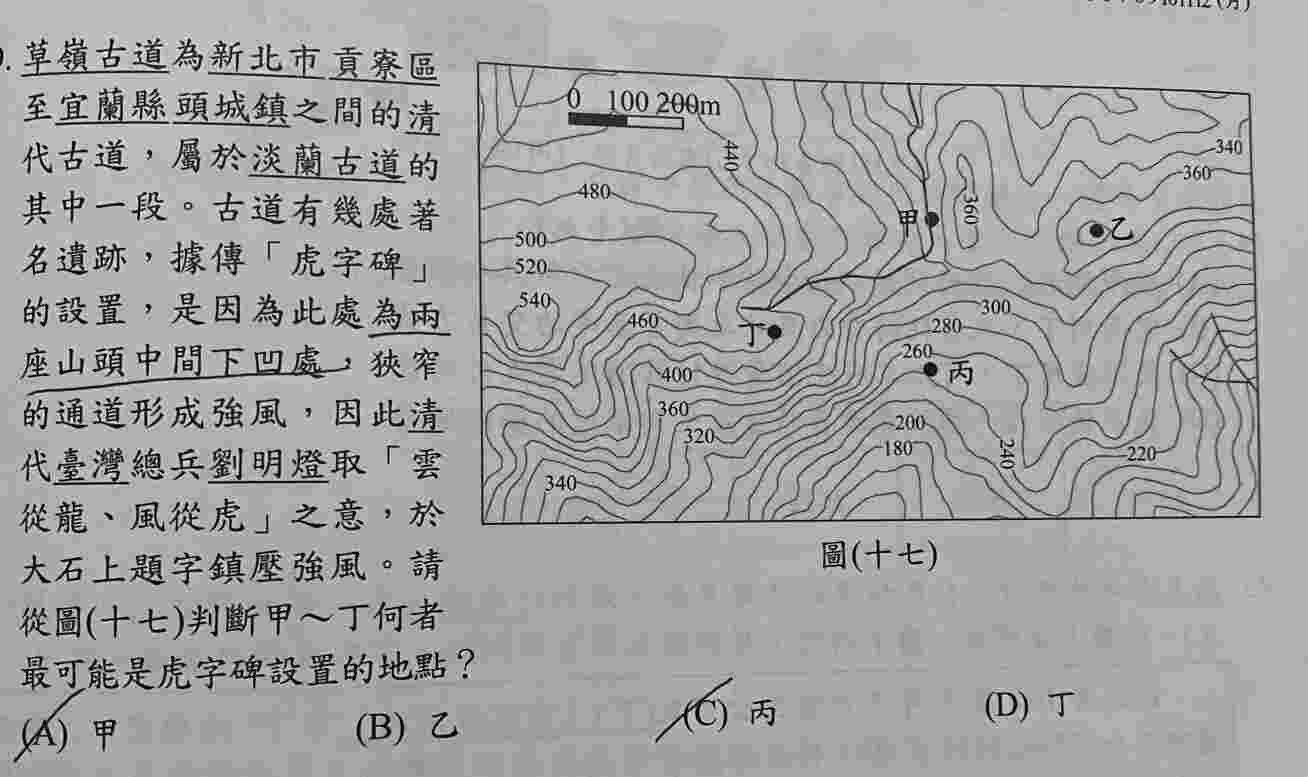 草嶺古道為新北市貢寮區
至宜蘭縣頭城鎮之間的清
代古道，屬於淡蘭古道的
其中一段。古道有幾處著
名遺跡，據傳「虎字碑」
的設置，是因為此處為兩
座山頭中間下凹處，狹窄
的通道形成強風，因此清
代臺灣總兵劉明燈取「雲
從龍、風從虎」之意，於
大石上題字鎮壓強風。請
從圖(十七)判斷甲～丁何者
最可能是虎字碑設置的地點？
0 100 200m
440
340
360
480
甲
360
乙
500
520
540
460
丁
300
280
260
丙
400
360
320
200
180
240
220
340
圖(十七)
(A) 甲
(B) 乙
(C) 丙
(D) 丁